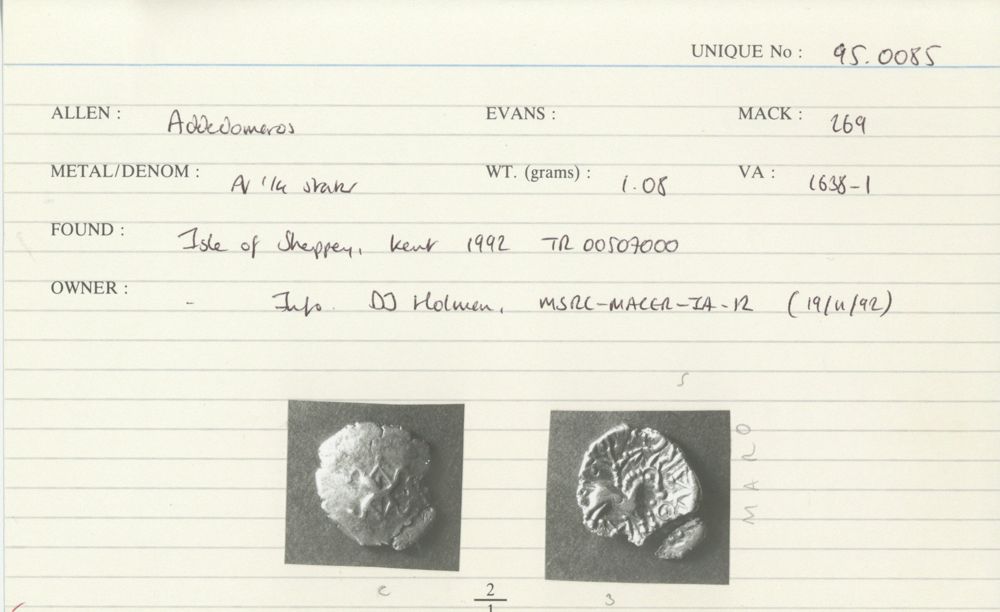 UNIQUE No : 95.0085
ALLEN : Addedomeros EVANS : MACK : 269
METAL/DENOM : AV 1/4 stater WT. (grams) : 1.08 VA : 1638-1
FOUND : Isle of Sheppey, Kent 1992 TR 00507000
OWNER : - Info. DJ Holman, MSRC-MACER-IA-12 (19/11/92)
S
MARO
c 2/1 3